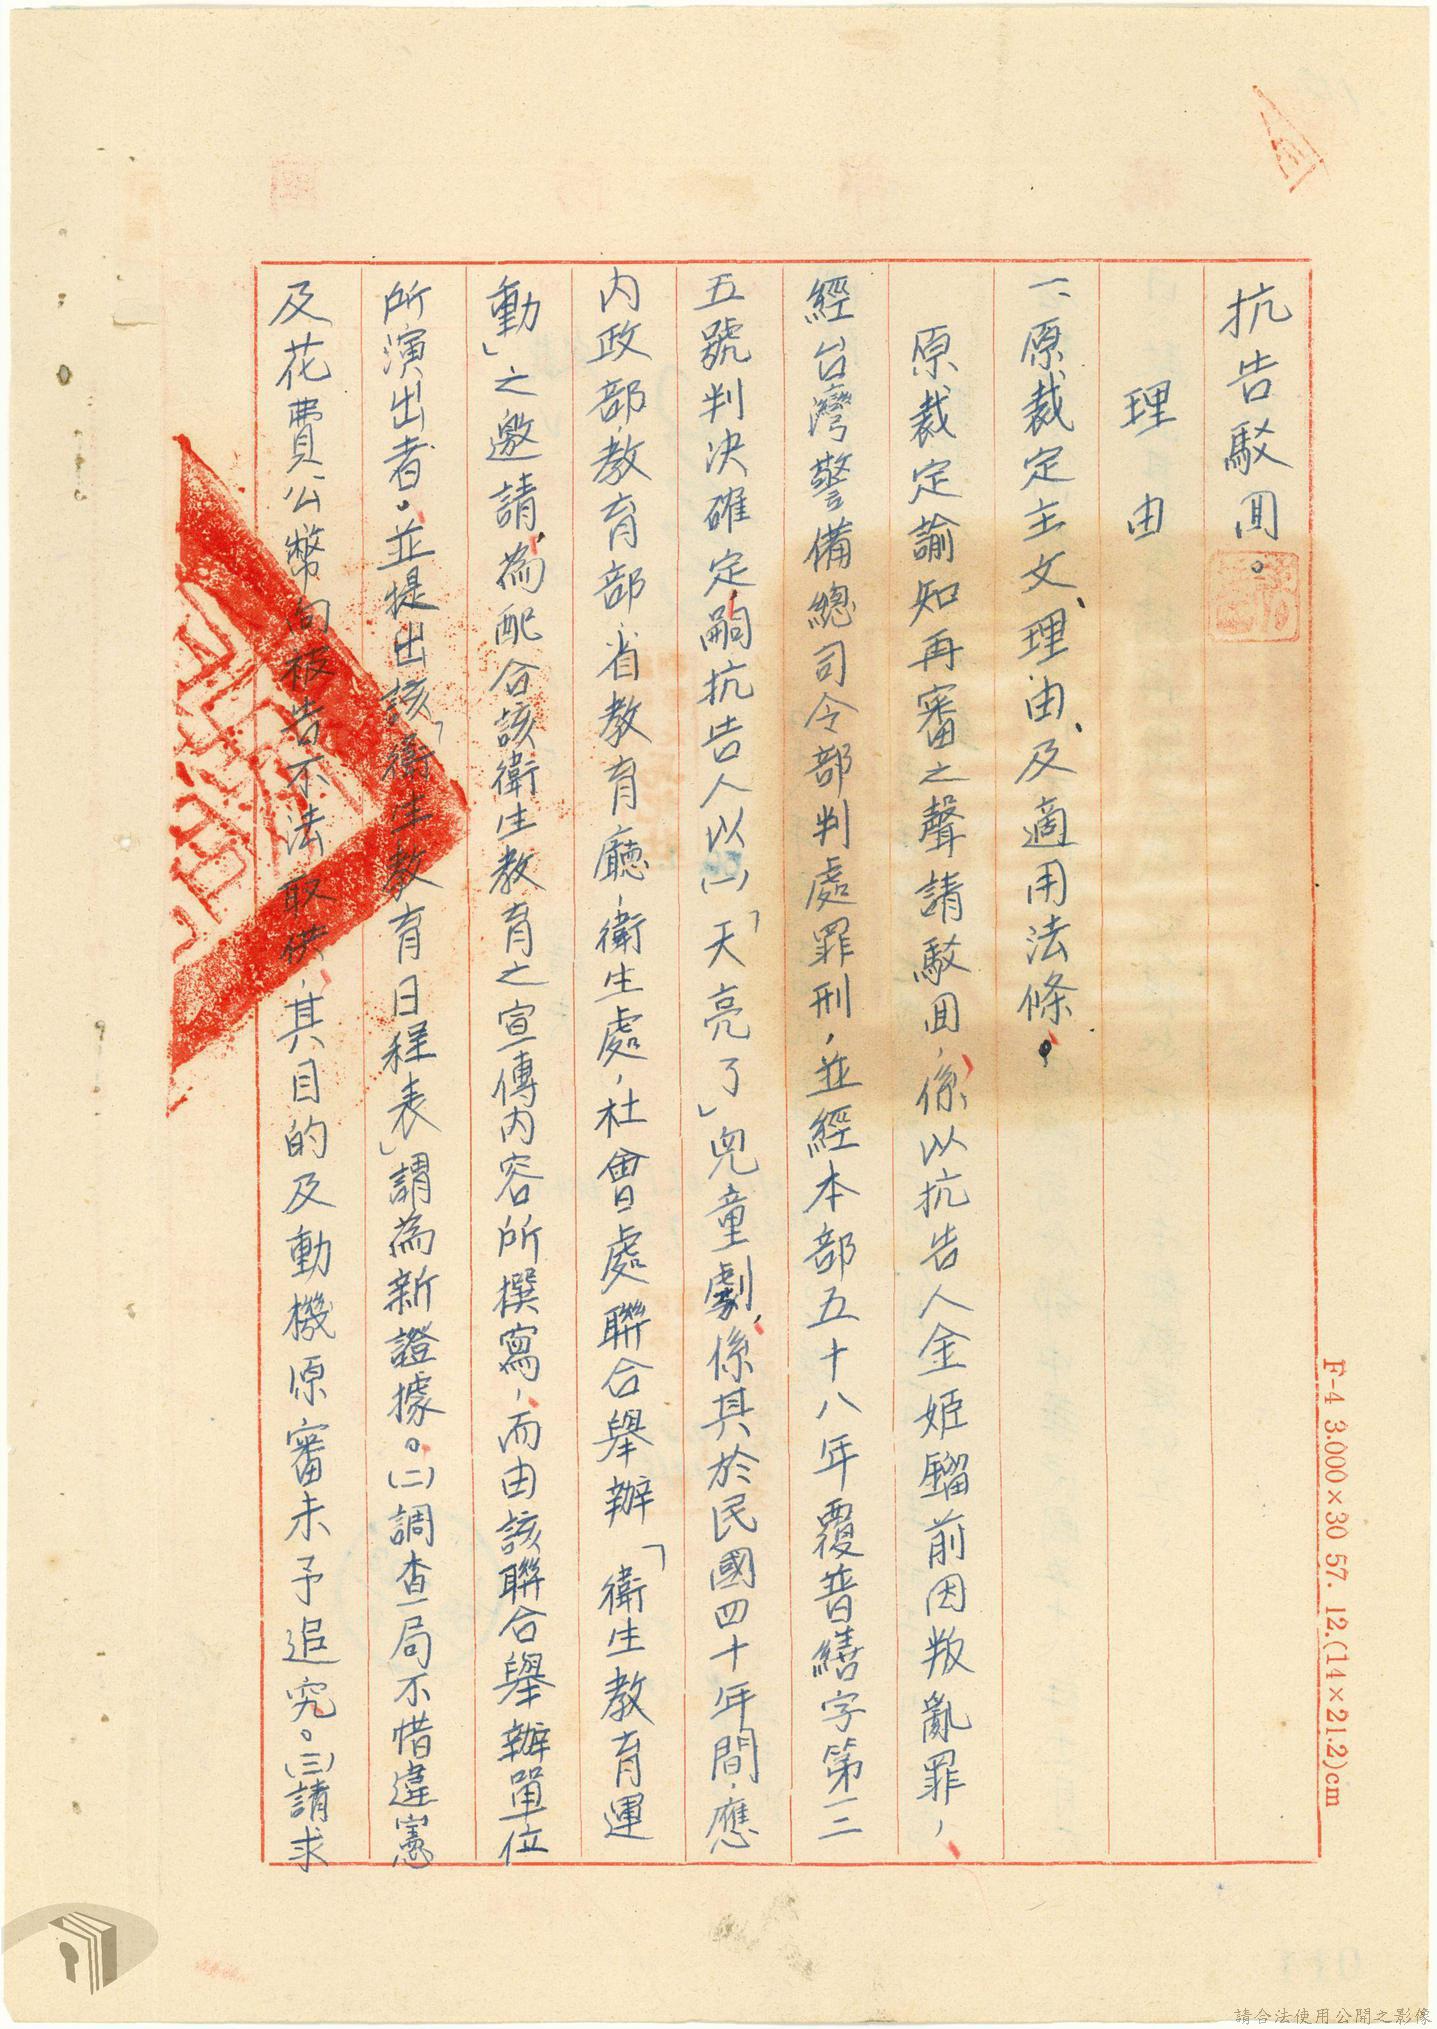 抗告駁囬。
理由
一、原裁定主文、理由、及適用法條。
原裁定諭知再審之聲請駁囬，係以抗告人金姬鎦前因叛亂罪，
經台灣警備總司令部判處罪刑，並經本部五十八年覆普繕字第三
五號判決確定，嗣抗告人以㈠「天亮了」兒童劇，係其於民國四十年間，應
內政部、教育部、省教育廳、衛生處、社會處聯合舉辦「衛生教育運
動」之邀請，為配合該衛生教育之宣傳內容所撰寫，而由該聯合舉辦單位
所演出者。並提出該「衛生教育日程表」謂為新證據。㈡調查局不惜違憲
及花費公幣向被告不法取供，其目的及動機原審未予追究。㈢請求
F-4 3.000×30 57. 12.(14×21.2)cm
請合法使用公開之影像